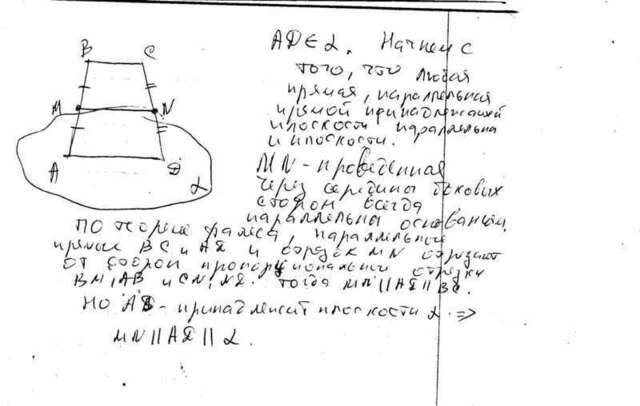 B C
M N
A D
α
AD ∈ α. Начнем с
того, что любая
прямая, параллельная
прямой принадлежащей
плоскости параллельна
и плоскости.
MN - проведенная
через середины боковых
сторон всегда
параллельны основаниям.
По теореме Фалеса, параллельные
прямые BC и AD и отрезок MN отрезают
от сторон пропорциональные отрезки
BM, AB и CN, ND. Тогда MN || AD || BC.
Но AD - принадлежит плоскости α =>
MN || AD || α.